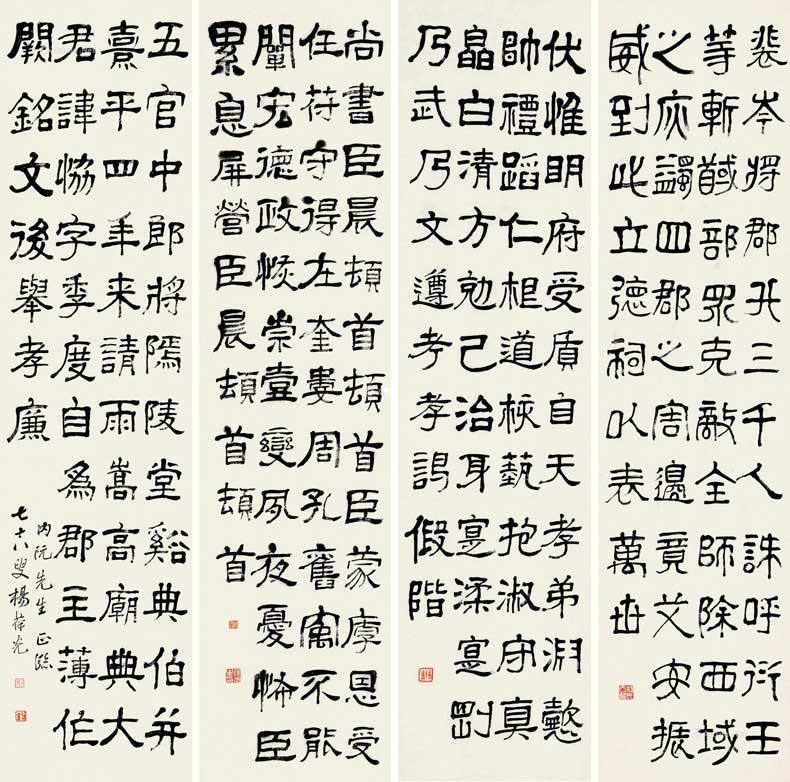 裴岑將郡兵三千人誅呼衍王
等斬馘部眾克敵全師除西域
之灾蠲四郡之害邊竟艾安振
威到此立德祠以表萬世
伏惟明府受質自天孝弟淵懿
帥禮蹈仁根道核藝抱淑守真
皛白清方勉己治身寔柔寔剛
乃武乃文遵考孝謁假階
尚書臣晨頓首頓首臣蒙厚恩受
任苻守得在奎婁周孔舊寓不能
闡宏德政恢崇壹變夙夜憂怖臣
累息屏營臣晨頓首頓首
五官中郎將隝陵堂谿典伯并
熹平四年来請雨嵩高廟典大
君諱協字季度自為郡主薄作
闕銘文後舉孝廉
阮先生正
七十八叟楊葆光